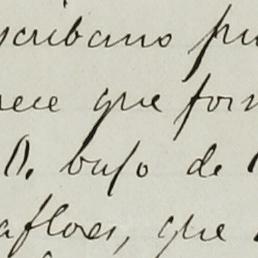 scribano pu
rece que for
D. bajo de
aflores, que